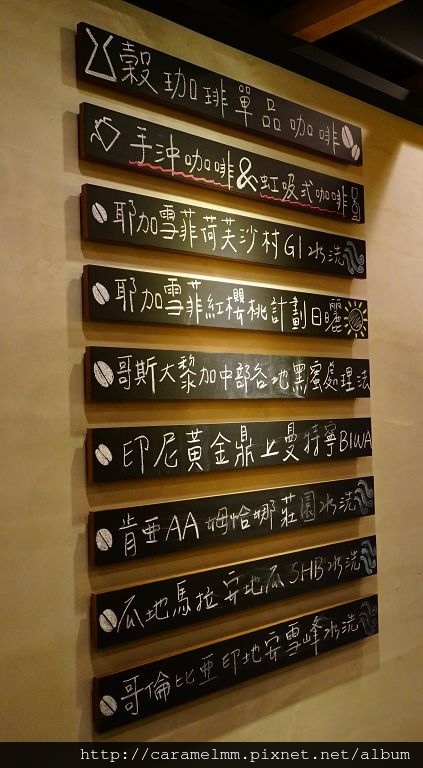 穀珈琲單品咖啡
手沖咖啡&虹吸式咖啡
耶加雪菲荷芙沙村G1水洗
耶加雪菲紅櫻桃計劃日曬
哥斯大黎加中部各地黑蜜處理法
印尼黃金鼎上曼特寧BIWA
肯亞AA姆恰娜莊園水洗
瓜地馬拉安地瓜SHB水洗
哥倫比亞印地安雪峰水洗
http://caramelmm.pixnet.net/album